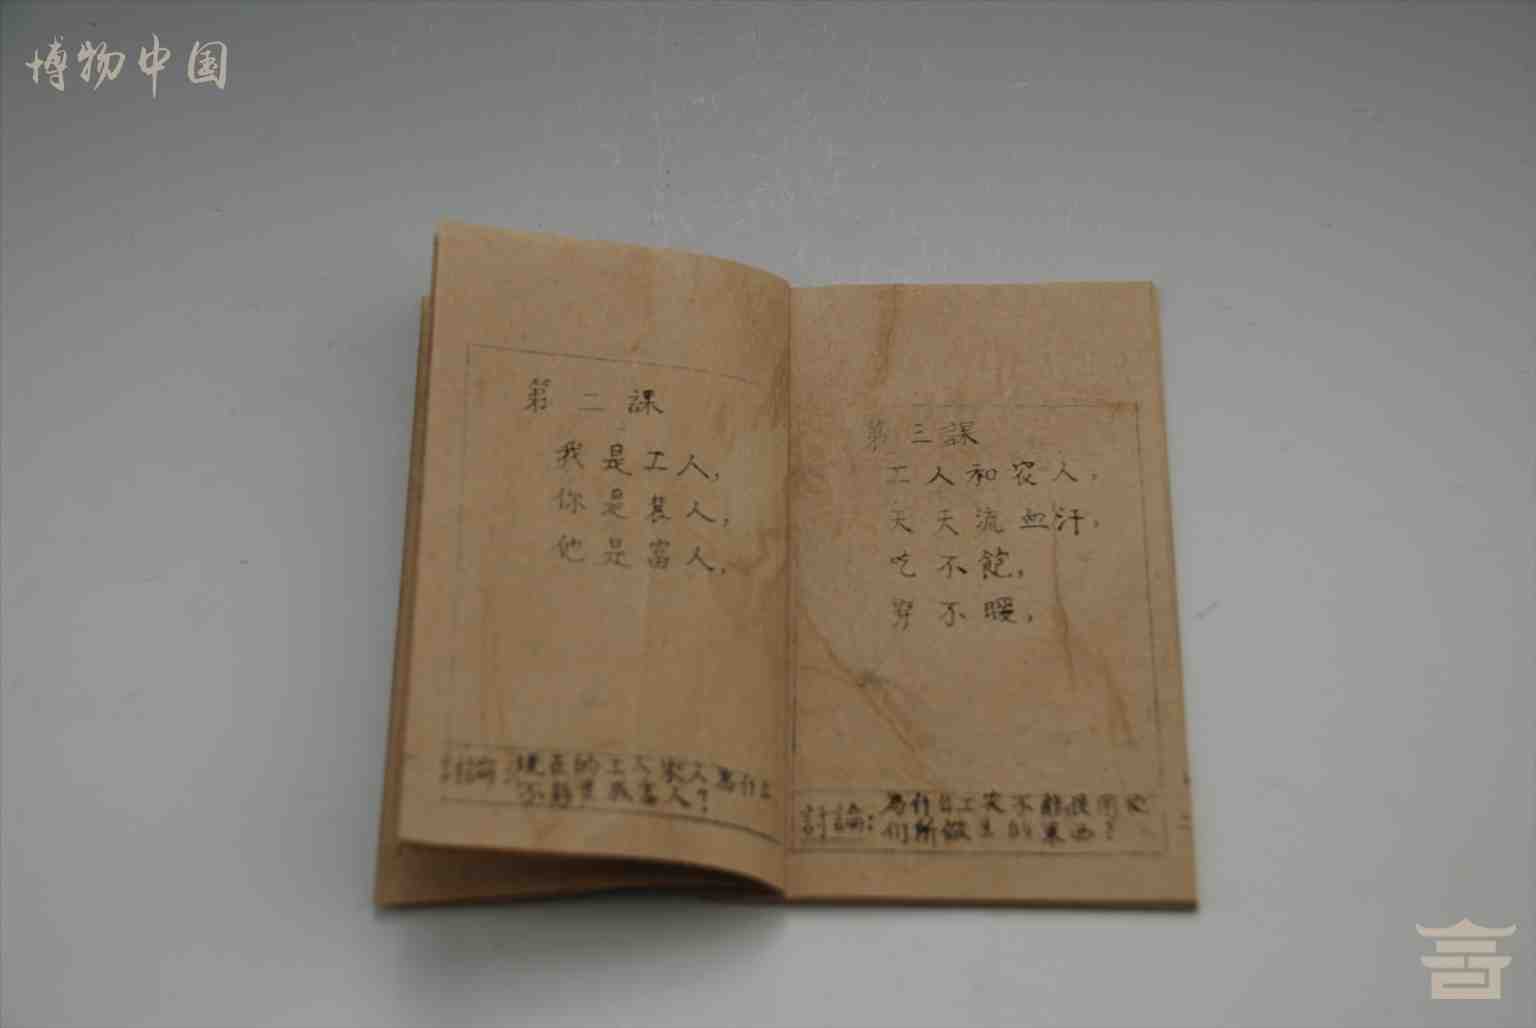 博物中国
第二課
我是工人,
你是農人,
他是富人,
討論:現在的工人农人為什
不能變成富人?
第三課
工人和农人,
天天流血汗,
吃不飽,
穿不暖,
討論:為什么工农不能使用他
们所做出的東西?